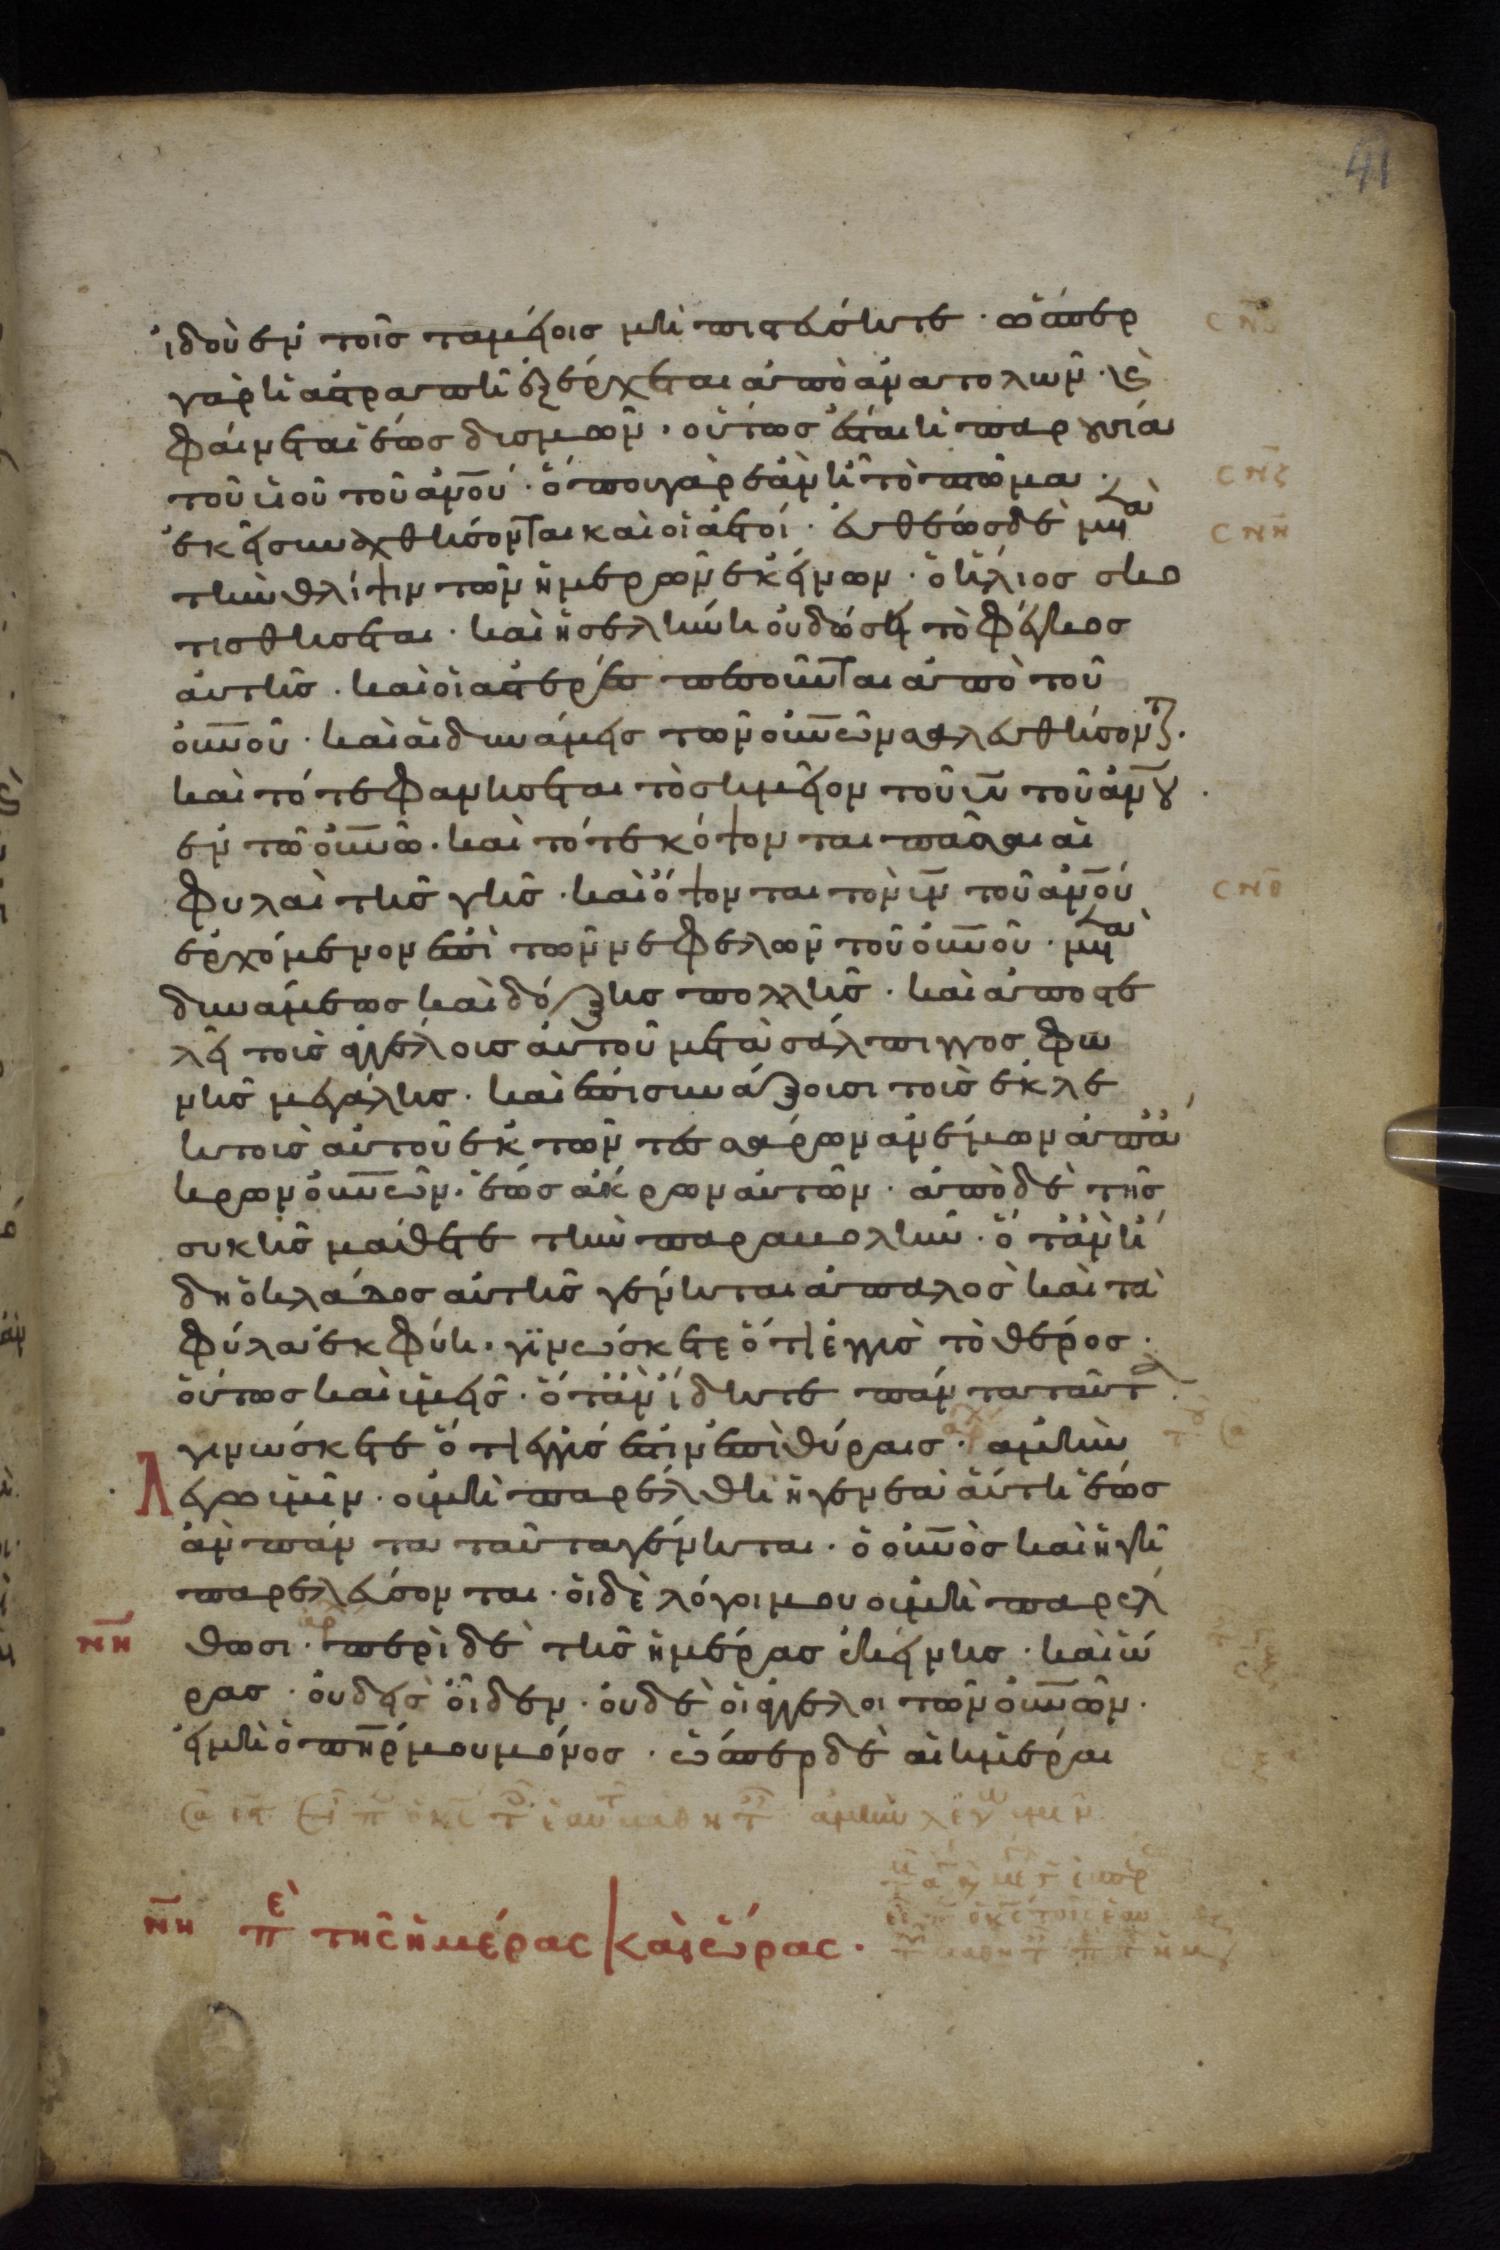 41
ἰδοὺ ἐν τοῖς ταμείοις μὴ πιστεύσητε · ὥσπερ
γὰρ ἡ ἀστραπὴ ἐξέρχεται ἀπὸ ἀνατολῶν · καὶ
φαίνεται ἕως δυσμῶν · οὕτως ἔσται ἡ παρουσία
τοῦ υἱοῦ τοῦ ἀνου · ὅπου γὰρ ἐὰν ἦ τὸ πτῶμα ·
ἐκεῖ συναχθήσονται καὶ οἱ ἀετοί · εὐθέως δὲ μετὰ
τὴν θλίψιν τῶν ἡμερῶν ἐκείνων · ὁ ἥλιος σκο
τισθήσεται · καὶ ἡ σελήνη οὐ δώσει τὸ φέγγος
αὐτῆς · καὶ οἱ ἀστέρες πεσοῦνται ἀπὸ τοῦ
οὐνοῦ · καὶ αἱ δυνάμεις τῶν οὐνῶν σαλευθήσοντ ·
καὶ τότε φανήσεται τὸ σημεῖον τοῦ υυ τοῦ ἀνου ·
ἐν τῶ οὐνῶ · καὶ τότε κόψονται πᾶσαι αἱ
φυλαὶ τῆς γῆς · καὶ ὄψονται τὸν υν τοῦ ἀνου
ἐρχόμενον ἐπὶ τῶν νεφελῶν τοῦ οὐνοῦ · μετὰ
δυνάμεως καὶ δόξης πολλῆς · καὶ ἀποστε
λεῖ τοὺς ἀγγέλους αὐτοῦ μετὰ σάλπιγγος φω
νῆς μεγάλης · καὶ ἐπισυνάξουσι τοὺς ἐκλε
κτοὺς αὐτοῦ ἐκ τῶν τεσσάρων ἀνέμων ἀπ' ἄ
κρων οὐνῶν · ἕως ἄκρων αὐτῶν · ἀπὸ δὲ τῆς
συκῆς μάθετε τὴν παραβολήν · ὅταν ἤ
δη ὁ κλάδος αὐτῆς γένηται ἁπαλὸς καὶ τὰ
φύλλα ἐκφύη · γινώσκετε ὅτι ἐγγὺς τὸ θέρος ·
οὕτως καὶ ὑμεῖς · ὅταν ἴδητε πάντα ταῦτα
γινώσκετε ὅτι ἐγγύς ἐστιν ἐπὶ θύραις · ἀμὴν
λέγω ὑμῖν · οὐ μὴ παρέλθη ἡ γενεὰ αὕτη ἕως
ἂν πάντα ταῦτα γένηται · ὁ οὐνὸς καὶ ἡ γῆ
παρελεύσονται · οἱ δὲ λόγοι μου οὐ μὴ παρέλ
νη θωσι · περὶ δὲ τῆς ἡμέρας ἐκείνης · καὶ ὥ
ρας · οὐδεὶς οἶδεν · οὐδὲ οἱ ἄγγελοι τῶν οὐνῶν ·
εἰ μὴ ὁ πηρ μου μόνος · ὥσπερ δὲ αἱ ἡμέραι
ἀμὴν λέγω ὑμῖν
νη πε τῆς ἡμέρας καὶ ὥρας ·
σνζ
σνη
σνθ